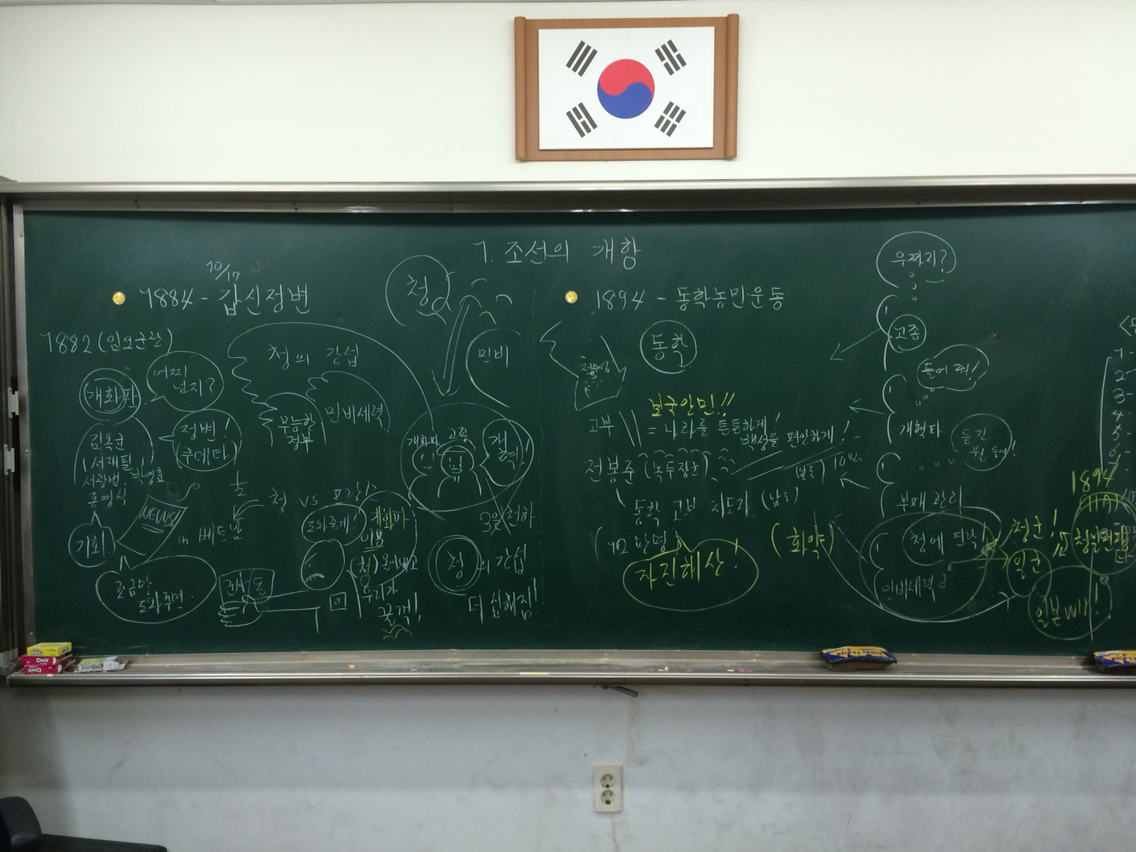 7. 조선의 개항
10/17
1884 - 갑신정변
1882 (임오군란)
개화파
어찌
정변!
쿠데타
김옥균
서재필
서광범
박영효
홍영식
기회!
NEWS!
in 베트남
조금만
도와주면..
청의 간섭
무능한
정부
민비세력
청
민비
개화파
고종
개혁!
1/2
청 vs 프랑스
도와줄게!
개화파
이용
청
우리가
꿀꺽!
3일천하
청의 간섭
더 심해짐!
1894 - 동학농민운동
동학
보국안민!!
고부
= 나라를 튼튼하게!
백성을 편안하게!
전봉준 (녹두장군)
(북도) 10만
동학 고부 지도자 (남도)
자진해산!
(화약)
우짜지?
고종
들어줘!
개혁파
부패 관리
청에 연락!
민비세력
청군!
일군!
1894
청일전쟁
일본 win!